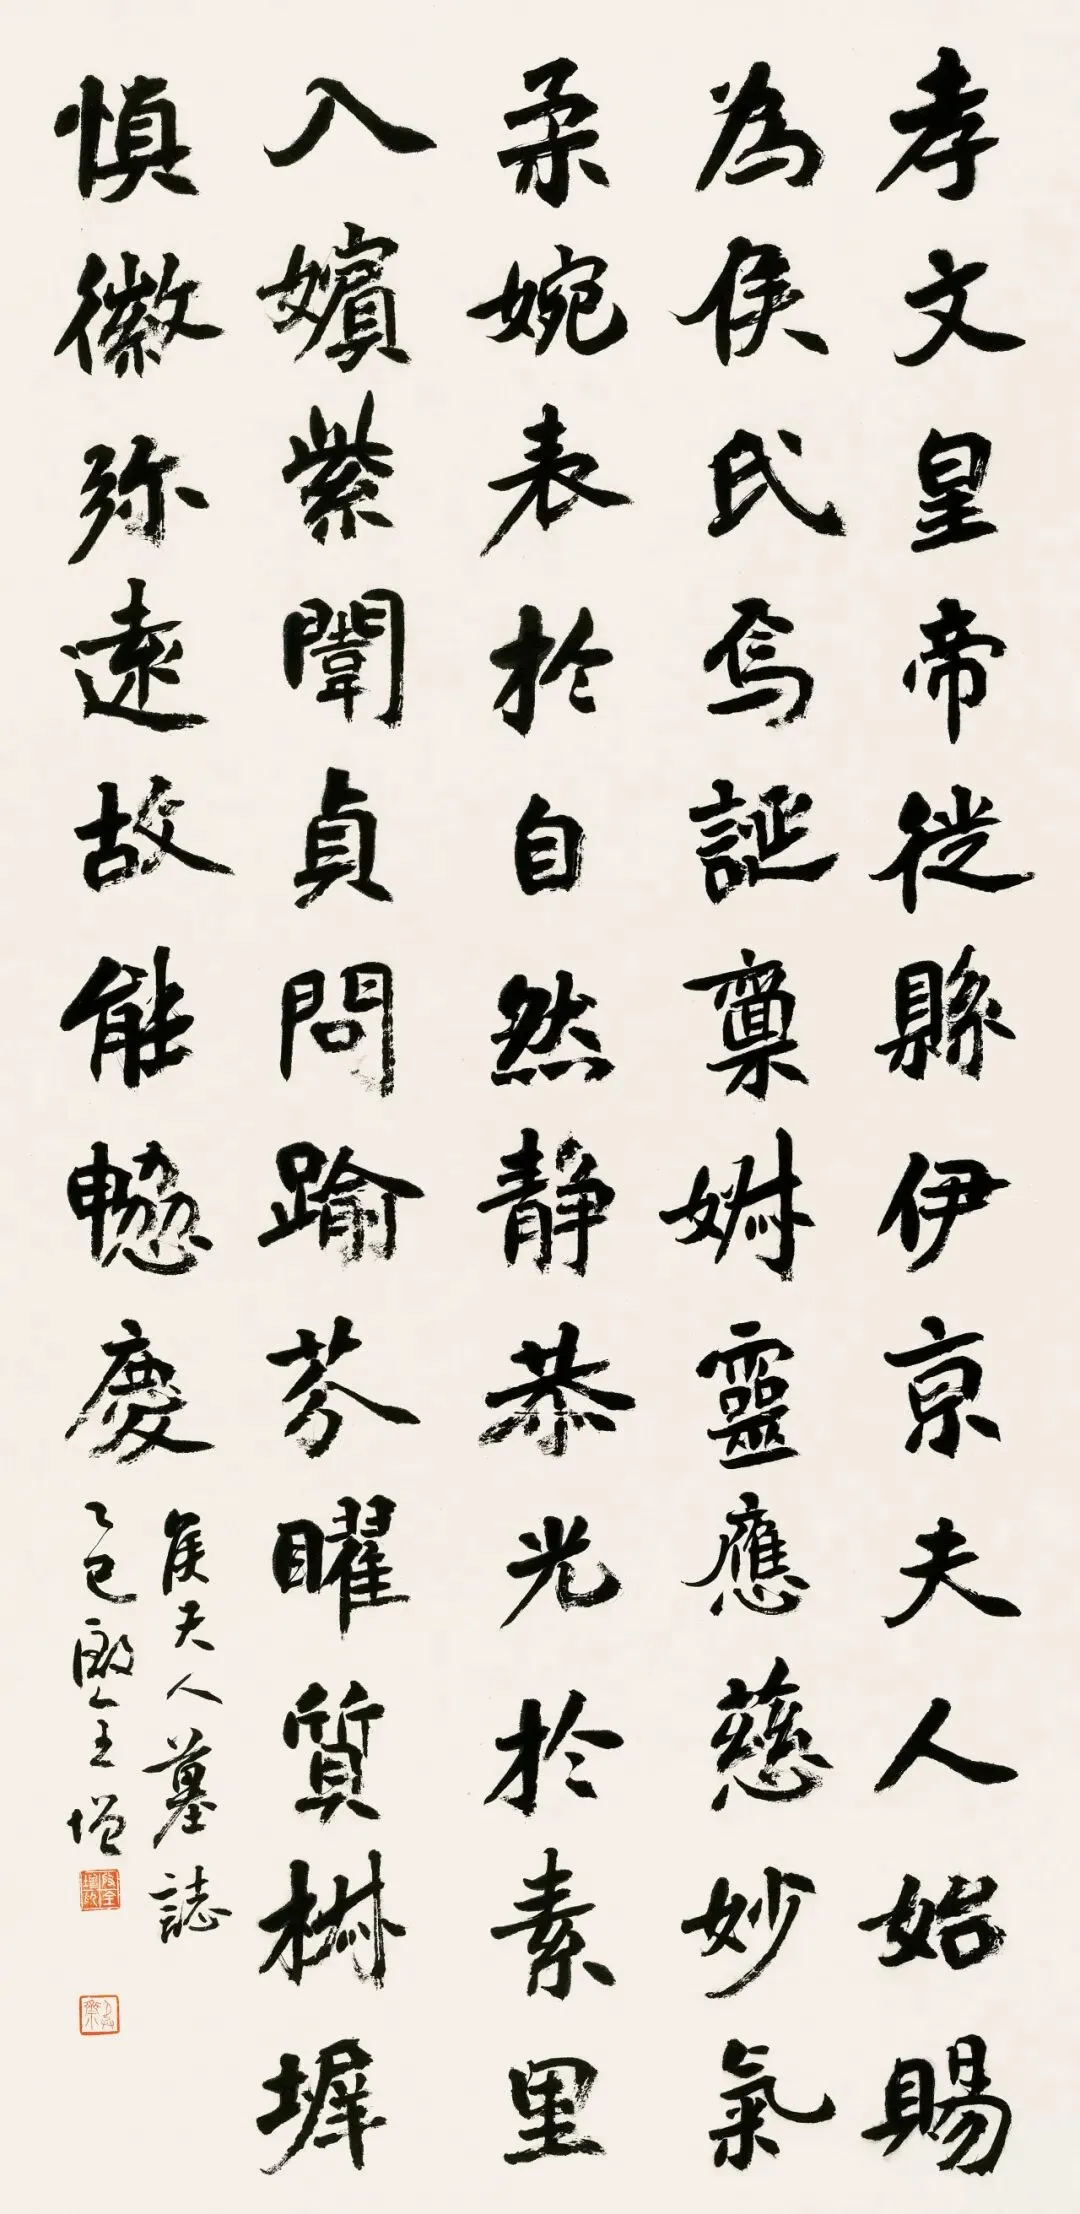 孝文皇帝徙縣伊京夫人始賜
為侯氏焉誕稟婌靈應慈妙氣
柔婉表於自然靜恭光於素里
入嬪紫闈貞問踰芬曜質椒墀
慎徽弥遠故能慶
侯夫人墓誌
乙巳殷全增